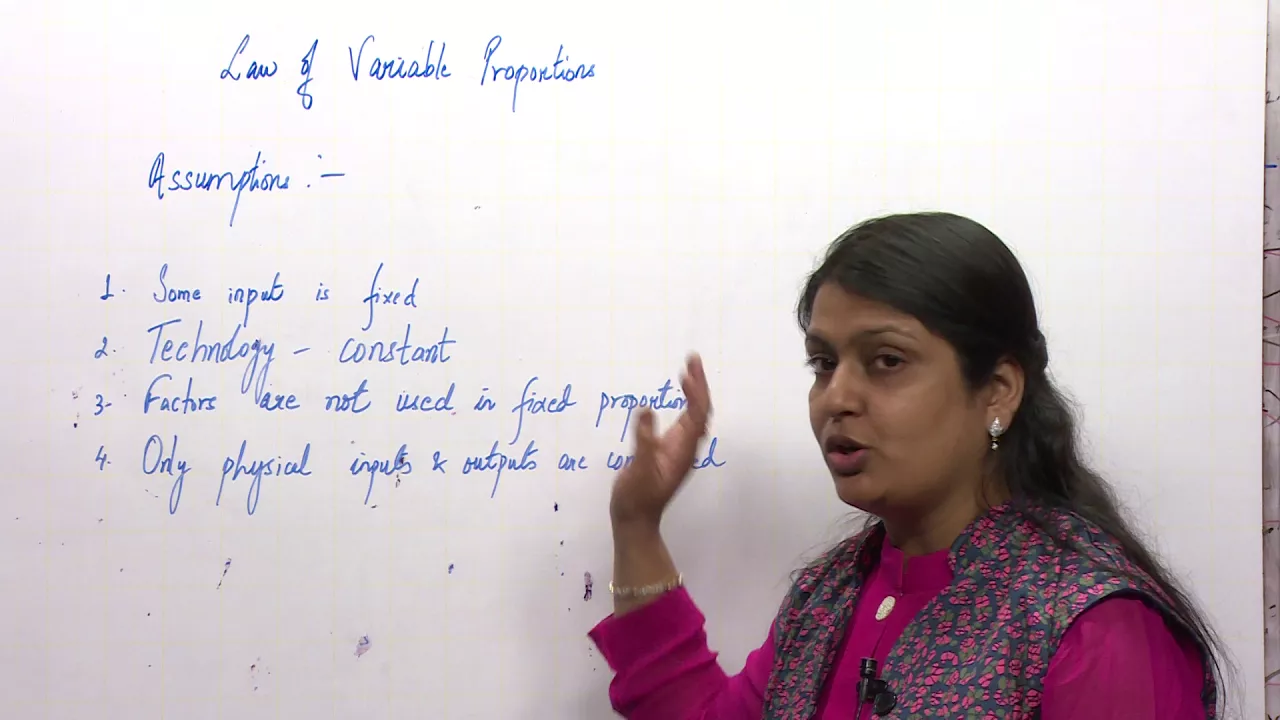 Law of Variable Proportions
Assumptions :-
1. Some input is fixed
2. Technology - constant
3. Factors are not used in fixed proportion
4. Only physical inputs & outputs are